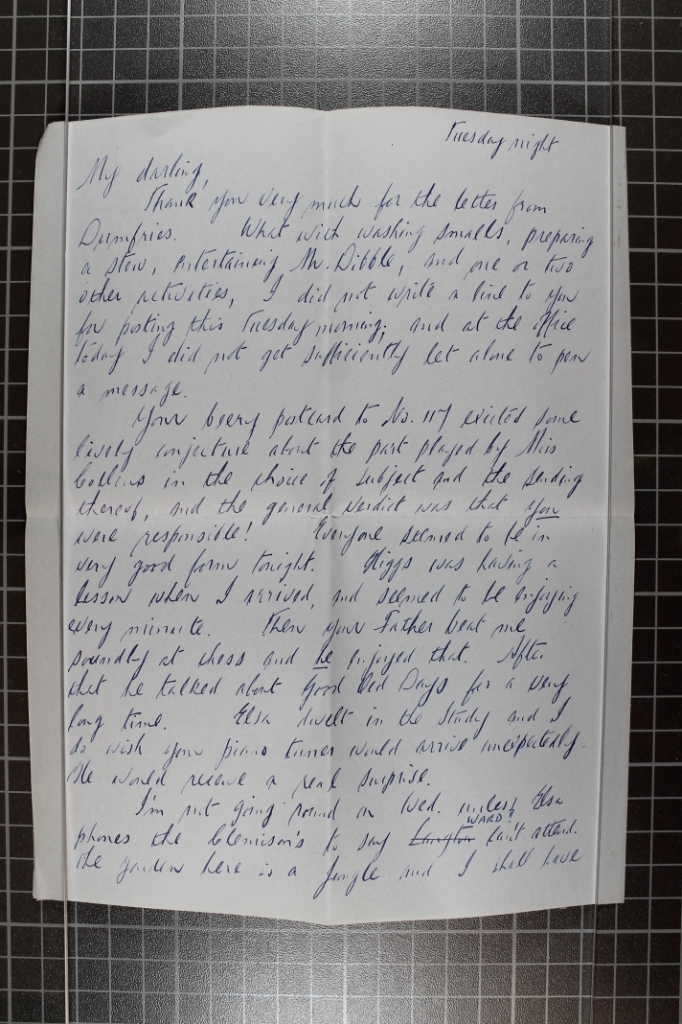 Tuesday night
My darling,
Thank you very much for the letter from
Dumfries. What with washing smalls, preparing
a stew, entertaining Mr. Dibble, and one or two
other activities, I did not write a line to you
for posting this Tuesday morning; and at the office
today I did not get sufficiently let alone to pen
a message.
Your beery postcard to No. 117 excited some
lively conjecture about the part played by Miss
Collens in the choice of subject and the sending
thereof, and the general verdict was that you
were responsible! Everyone seemed to be in
very good form tonight. Higgs was having a
lesson when I arrived, and seemed to be enjoying
every minute. Then your Father beat me
soundly at chess and he enjoyed that. After
that he talked about Good Old Days for a very
long time. Elsa dwelt in the study and I
do wish your piano tuner would arrive unexpectedly.
He would receive a real surprise.
I'm not going round on Wed. unless Elsa
phones the Clemison's to say Langton WARD? can't attend.
The garden here is a jungle and I shall have